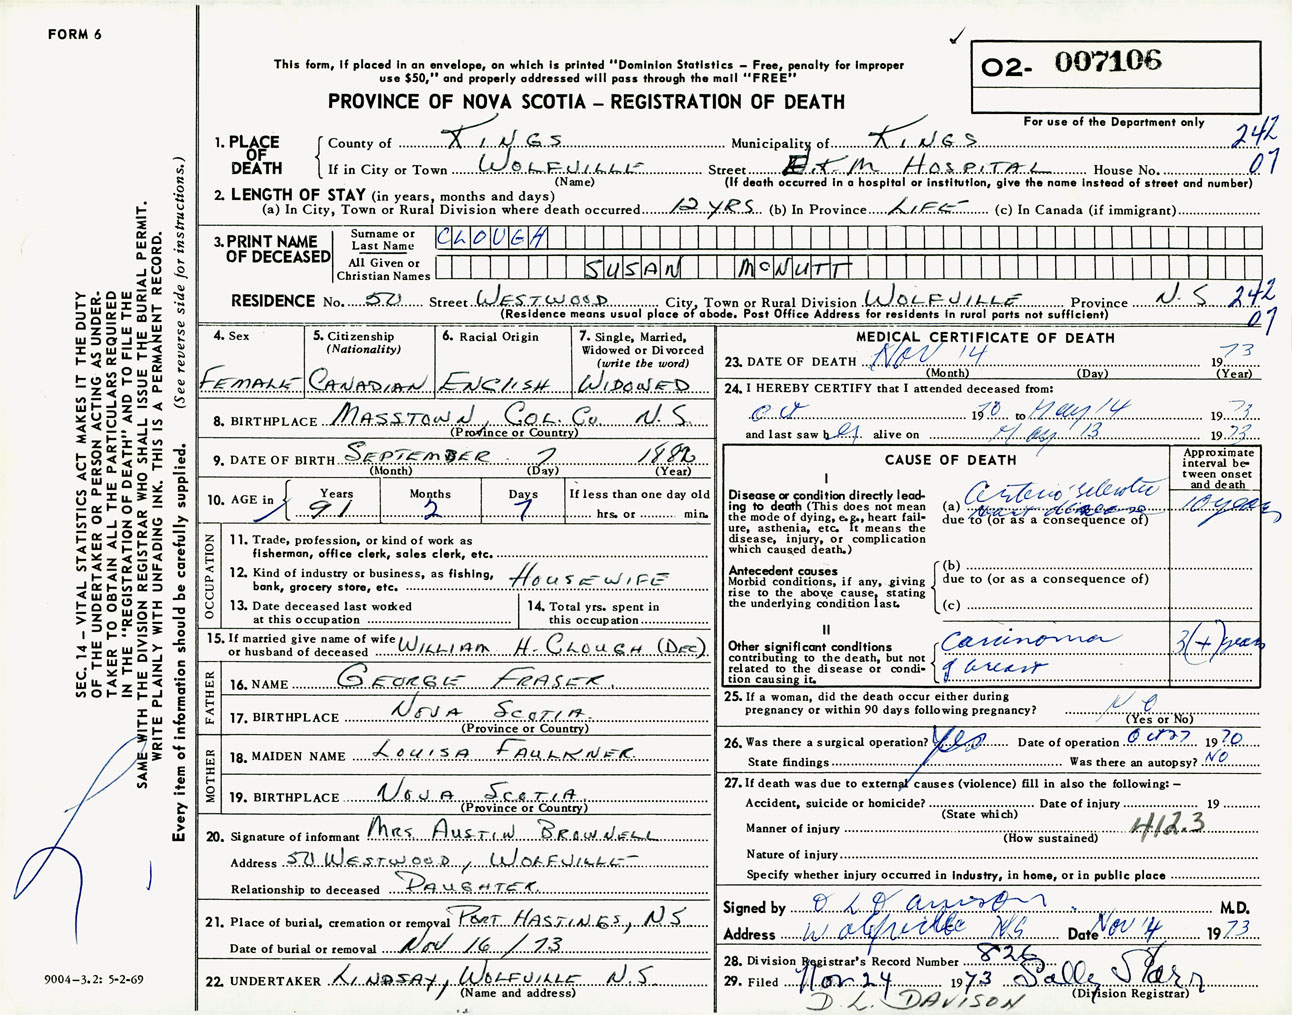 FORM 6
This form, if placed in an envelope, on which is printed "Dominion Statistics – Free, penalty for improper
use $50," and properly addressed will pass through the mail "FREE"
PROVINCE OF NOVA SCOTIA – REGISTRATION OF DEATH
O2- 007106
For use of the Department only
1. PLACE OF DEATH
County of KINGS Municipality of KINGS 242
If in City or Town WOLFVILLE Street E.K.M. HOSPITAL House No. 07
(Name) (If death occurred in a hospital or institution, give the name instead of street and number)
2. LENGTH OF STAY (in years, months and days)
(a) In City, Town or Rural Division where death occurred 12 YRS (b) In Province LIFE (c) In Canada (if immigrant)
3. PRINT NAME OF DECEASED
Surname or Last Name CLOUGH
All Given or Christian Names SUSAN McNUTT
RESIDENCE No. 50 Street WESTWOOD City, Town or Rural Division WOLFVILLE Province N.S 242
(Residence means usual place of abode. Post Office Address for residents in rural parts not sufficient) 07
4. Sex
FEMALE
5. Citizenship
(Nationality)
CANADIAN
6. Racial Origin
ENGLISH
7. Single, Married,
Widowed or Divorced
(write the word)
WIDOWED
8. BIRTHPLACE MASSTOWN, COL. CO. N.S.
(Province or Country)
9. DATE OF BIRTH SEPTEMBER 7 1882
(Month) (Day) (Year)
10. AGE in Years Months Days If less than one day old
91 2 7 hrs. or min.
OCCUPATION
11. Trade, profession, or kind of work as
fisherman, office clerk, sales clerk, etc.
12. Kind of industry or business, as fishing,
bank, grocery store, etc. HOUSEWIFE
13. Date deceased last worked
at this occupation
14. Total yrs. spent in
this occupation
15. If married give name of wife
or husband of deceased WILLIAM H. CLOUGH (DEC)
FATHER
16. NAME GEORGE FRASER.
17. BIRTHPLACE NOVA SCOTIA.
(Province or Country)
MOTHER
18. MAIDEN NAME LOUISA FAULKNER.
19. BIRTHPLACE NOVA SCOTIA
(Province or Country)
20. Signature of informant MRS AUSTIN BROWNELL
Address 50 WESTWOOD, WOLFVILLE
Relationship to deceased DAUGHTER.
21. Place of burial, cremation or removal PORT HASTINGS, NS
Date of burial or removal NOV 16 / 73
22. UNDERTAKER LINDSAY, WOLFVILLE N.S.
(Name and address)
MEDICAL CERTIFICATE OF DEATH
23. DATE OF DEATH Nov 14 1973
(Month) (Day) (Year)
24. I HEREBY CERTIFY that I attended deceased from:
Oct 1970 to May 14 1973
and last saw her alive on May 13 1973
CAUSE OF DEATH
Approximate interval between onset and death
I
Disease or condition directly lead-
ing to death (This does not
mean the mode of dying, e.g., heart fail-
ure, asthenia, etc. It means the
disease, injury, or complication
which caused death.)
(a) Arterio sclerotic heart disease 10 years
due to (or as a consequence of)
Antecedent causes
Morbid conditions, if any, giving
rise to the above cause, stating
the underlying condition last.
(b)
due to (or as a consequence of)
(c)
II
Other significant conditions
contributing to the death, but not
related to the disease or condi-
tion causing it.
Carcinoma 3(+) years
of breast
25. If a woman, did the death occur either during
pregnancy or within 90 days following pregnancy? NO
(Yes or No)
26. Was there a surgical operation? Yes Date of operation Oct 27 1970
State findings Was there an autopsy? NO
27. If death was due to external causes (violence) fill in also the following: –
Accident, suicide or homicide? Date of injury 19
(State which)
Manner of injury 412.3
(How sustained)
Nature of injury
Specify whether injury occurred in industry, in home, or in public place
Signed by D L Davison M.D.
Address Wolfville NS Date Nov 14 1973
28. Division Registrar's Record Number 826
29. Filed Nov 24 1973 Sally Starr
(Division Registrar)
D. L. DAVISON
SEC. 14 – VITAL STATISTICS ACT MAKES IT THE DUTY
OF THE UNDERTAKER OR PERSON ACTING AS UNDER-
TAKER TO OBTAIN ALL THE PARTICULARS REQUIRED
IN THE "REGISTRATION OF DEATH" AND TO FILE THE
SAME WITH THE DIVISION REGISTRAR WHO SHALL ISSUE THE BURIAL PERMIT.
WRITE PLAINLY WITH UNFADING INK. THIS IS A PERMANENT RECORD.
Every item of information should be carefully supplied. (See reverse side for instructions.)
9004-3.2: 5-2-69